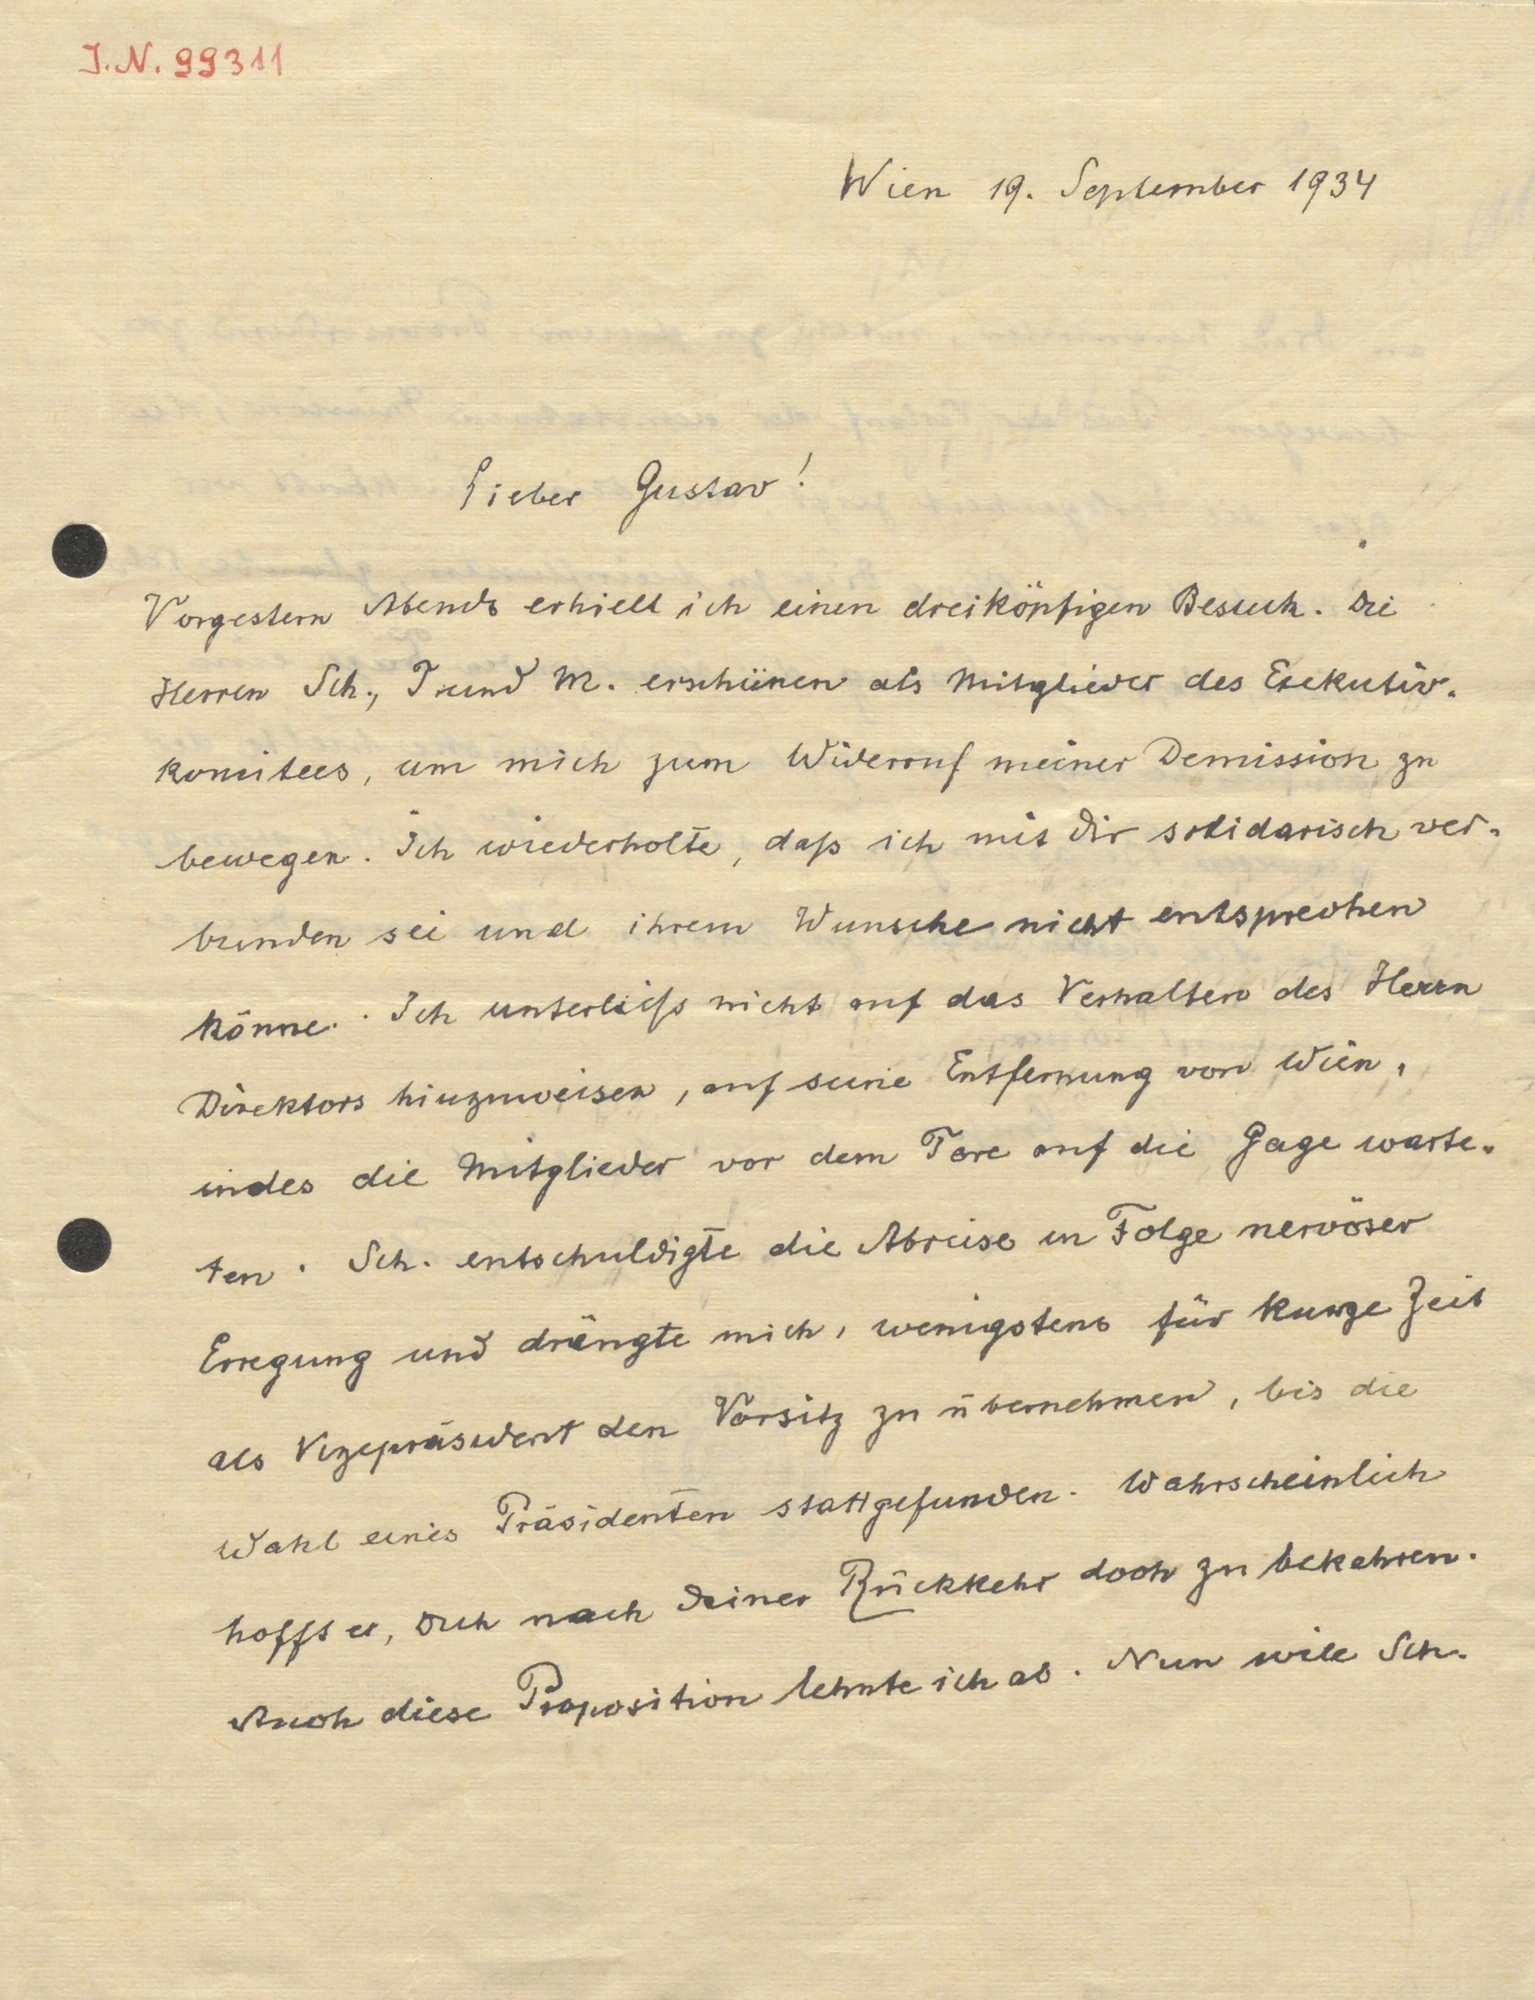 J.N. 99311
Wien 19. September 1934
Lieber Gustav!
Vorgestern Abends erhielt ich einen dreiköpfigen Besuch. Die
Herren Sch., T. und M. erschienen als Mitglieder des Exekutiv-
komitees, um mich zum Widerruf meiner Demission zu
bewegen. Ich wiederholte, daß ich mit Dir solidarisch ver-
bunden sei und ihrem Wunsche nicht entsprechen
könne. Ich unterließ nicht auf das Verhalten des Herrn
Direktors hinzuweisen, auf seine Entfernung von Wien,
indes die Mitglieder vor dem Tore auf die Gage warte-
ten. Sch. entschuldigte die Abreise in Folge nervöser
Erregung und drängte mich, wenigstens für kurze Zeit
als Vizepräsident den Vorsitz zu übernehmen, bis die
Wahl eines Präsidenten stattgefunden. Wahrscheinlich
hofft er, Dich nach Deiner Rückkehr doch zu bekehren.
Auch diese Proposition lehnte ich ab. Nun will Sch.